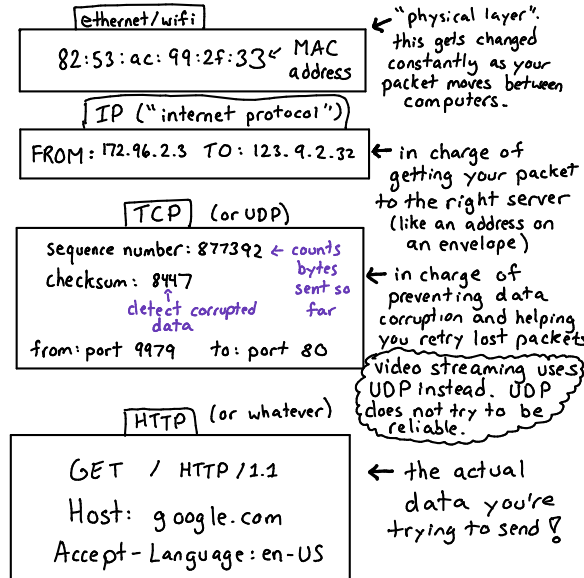 ethernet/wifi
82:53:ac:99:2f:33 ← MAC
address
← "physical layer".
this gets changed
constantly as your
packet moves between
computers.
IP ("internet protocol")
FROM: 172.96.2.3 TO: 123.9.2.32
← in charge of
getting your packet
to the right server
(like an address on
an envelope)
TCP (or UDP)
sequence number: 877392 ← counts
bytes
sent so
far
checksum: 8447
↑
detect corrupted
data
from: port 9979 to: port 80
← in charge of
preventing data
corruption and helping
you retry lost packets
video streaming uses
UDP instead. UDP
does not try to be
reliable.
HTTP (or whatever)
GET / HTTP/1.1
Host: google.com
Accept-Language: en-US
← the actual
data you're
trying to send!